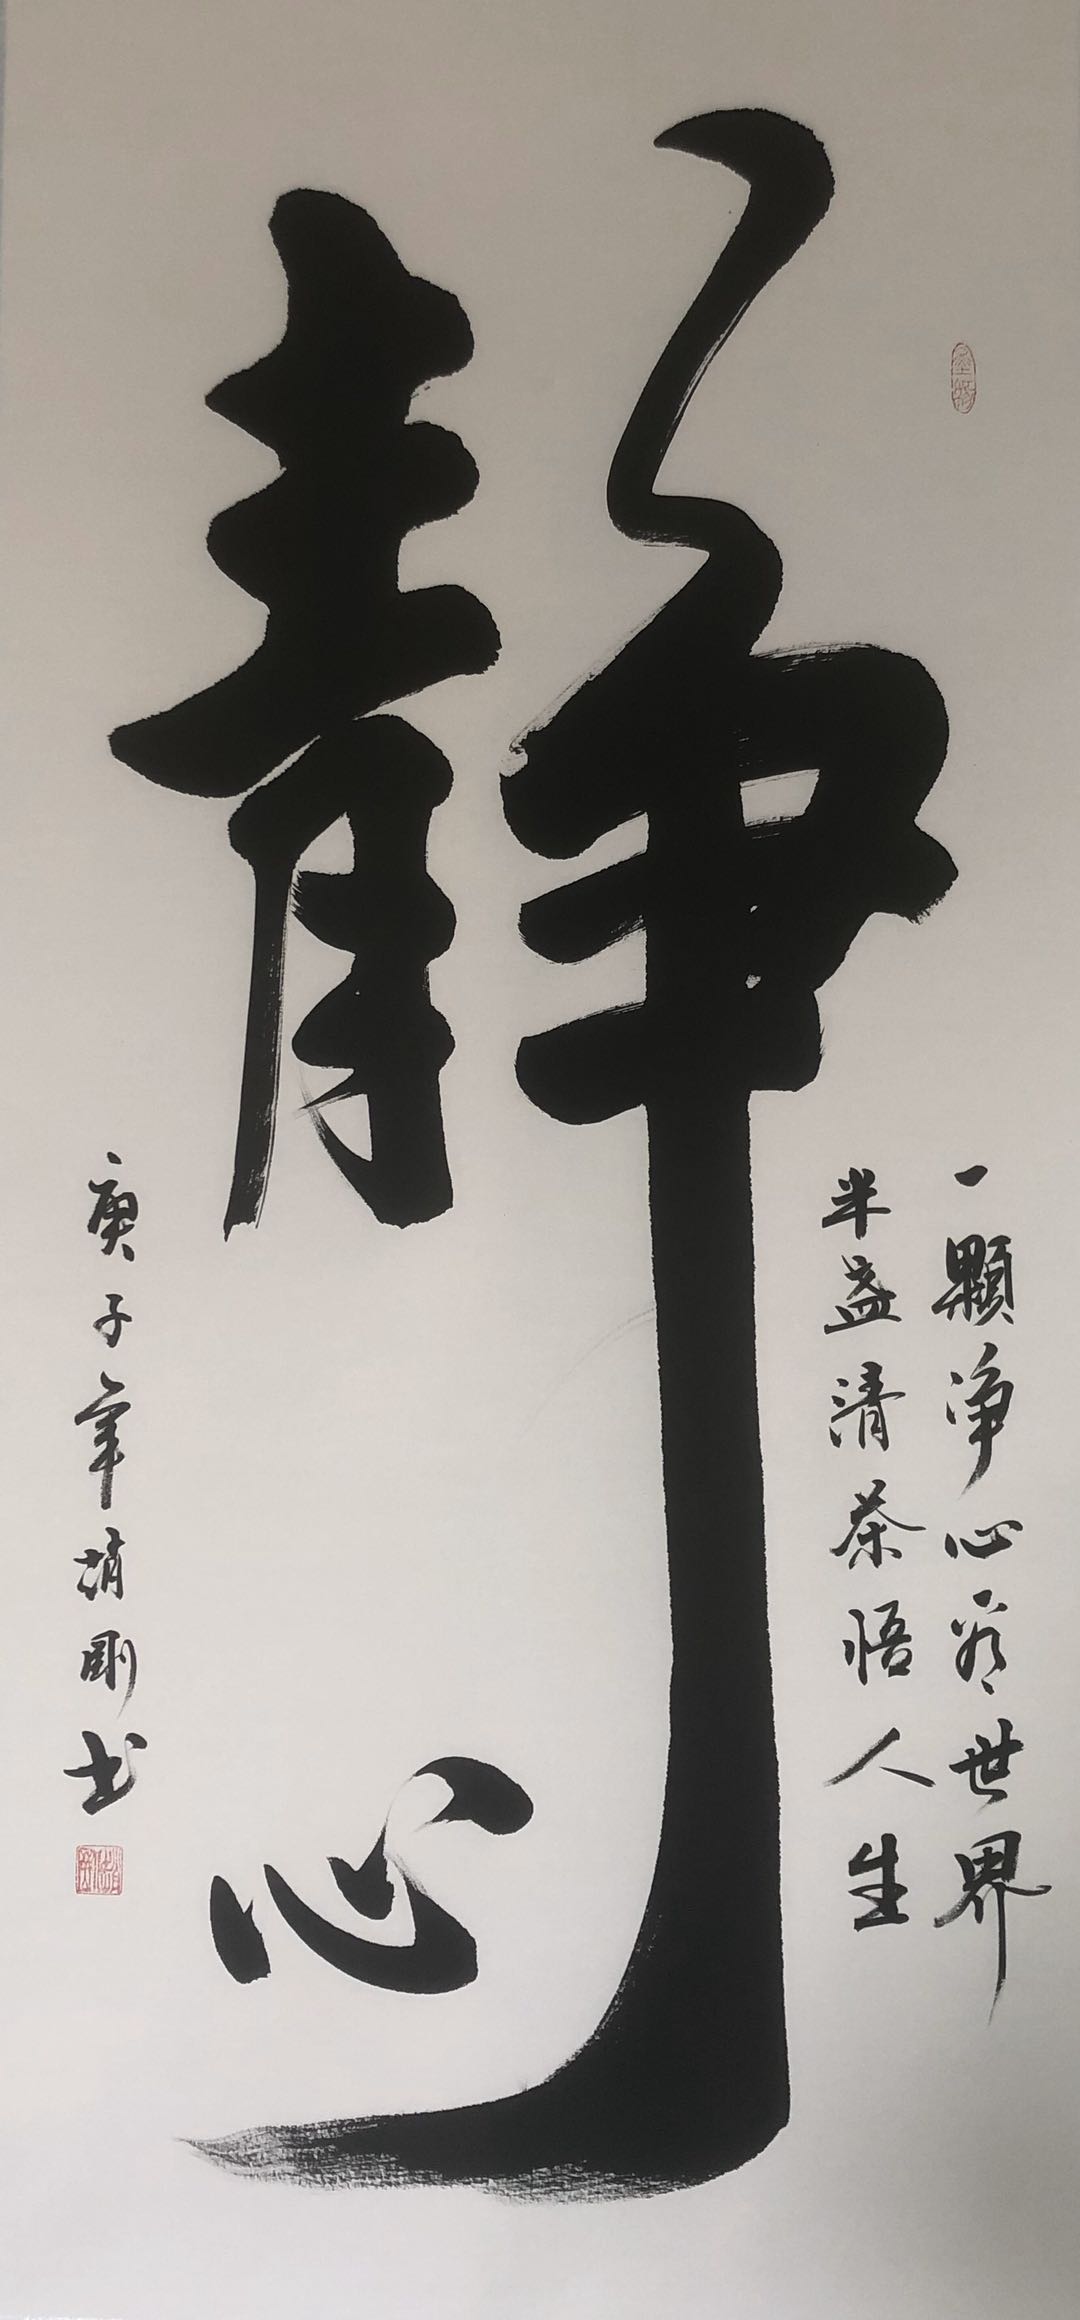 静心
一顆净心看世界
半盏清茶悟人生
庚子年靖剛书